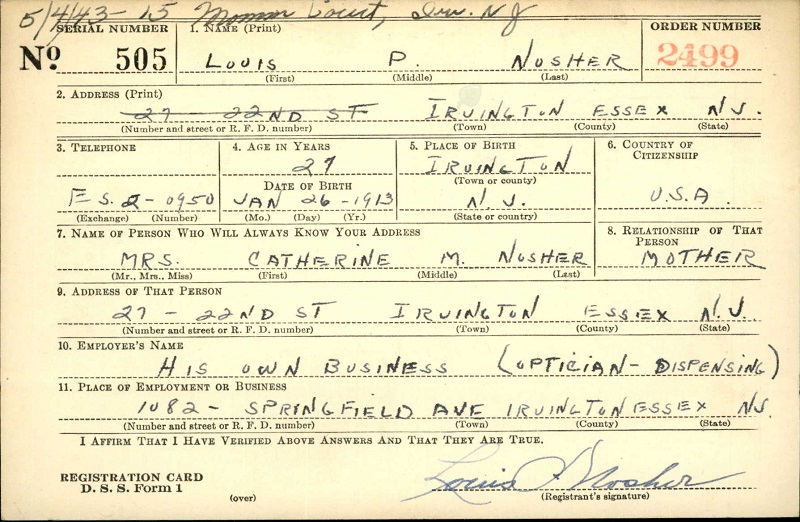 5/4/43-15 Court, Irv. N J
SERIAL NUMBER 1. NAME (Print) ORDER NUMBER
No 505 LOUIS P. NOSHER 2499
(First) (Middle) (Last)
2. ADDRESS (Print)
27 - 22ND ST IRVINGTON ESSEX N.J.
(Number and street or R. F. D. number) (Town) (County) (State)
3. TELEPHONE 4. AGE IN YEARS 5. PLACE OF BIRTH 6. COUNTRY OF CITIZENSHIP
27 IRVINGTON
DATE OF BIRTH (Town or county)
ES. 2-0950 JAN 26-1913 N.J. U.S.A.
(Exchange) (Number) (Mo.) (Day) (Yr.) (State or country)
7. NAME OF PERSON WHO WILL ALWAYS KNOW YOUR ADDRESS 8. RELATIONSHIP OF THAT PERSON
MRS. CATHERINE M. NOSHER MOTHER
(Mr., Mrs., Miss) (First) (Middle) (Last)
9. ADDRESS OF THAT PERSON
27 - 22ND ST IRVINGTON ESSEX N.J.
(Number and street or R. F. D. number) (Town) (County) (State)
10. EMPLOYER'S NAME
HIS OWN BUSINESS (OPTICIAN - DISPENSING)
11. PLACE OF EMPLOYMENT OR BUSINESS
1082 - SPRINGFIELD AVE IRVINGTON ESSEX NJ.
(Number and street or R. F. D. number) (Town) (County) (State)
I AFFIRM THAT I HAVE VERIFIED ABOVE ANSWERS AND THAT THEY ARE TRUE.
REGISTRATION CARD Louis P Nosher
D. S. S. Form 1 (over) (Registrant's signature)